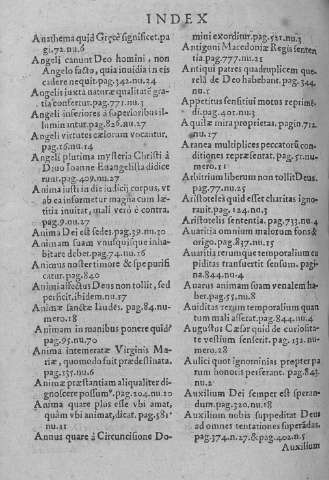 INDEX
Anathema quid Græcè significet. pa
gi. 72. nu. 6
Angeli canunt Deo homini, non
Angelo facto, quia inuidia in eis
cadere nequit. pag. 342. nu. 24
Angelis iuxta naturæ qualitatẽ gra
tia confertur. pag. 771. nu. 3
Angeli inferiores à superioribus il-
luminantur. pag. 826. nu. 27
Angeli virtutes cælorum vocantur.
pag. 16. nu. 14
Angeli plurima mysteria Christi à
Diuo Ioanne Euangelista didice
runt. pag. 409. nu. 27
Anima iusti in die iudicij corpus, vt
ab ea informetur magna cum læ-
titia inuitat, mali verò è contra.
pag. 9. nu. 27
Anima Dei est sedes. pag. 39. nu. 30
Animam suam vnusquisque inha-
bitare debet. pag. 74. nu. 16
Animus noster timore & spe purifi
catur. pag. 840
Animi affectus Deus non tollit, sed
perficit. ibidem. nu. 17
Animæ sanctæ laudes. pag. 84. nu-
mero. 18
Animam in manibus ponere quid?
pag. 95. nu. 70
Anima intemeratæ Virginis Ma-
riæ, quomodo fuit prædestinata.
pag. 137. nu. 6
Animæ præstantiam aliqualiter di-
gnoscere possum⁹. pag. 204. nu. 20
Anima quare plus esse vbi amat,
quàm vbi animat, dicat. pag. 581.
nu. 21
Annus quare à Circuncisione Do-
mini exorditur. pag. 581. nu. 3
Antigoni Macedoniæ Regis senten
tia. pag. 777. nu. 25
Antiqui patres quadruplicem que-
relã de Deo habebant. pag. 344.
nu. 1
Appetitus sensitiui motus reprimẽ-
di. pag. 401. nu. 3
Aquilæ mira proprietas. pagin. 712.
nu. 17
Aranea multiplices peccatorũ con-
ditiones repræsentat. pag. 51. nu-
mero. 11
Arbitrium liberum non tollit Deus.
pag. 77. nu. 25
Aristoteles quid esset charitas igno-
rauit. pag. 124. nu. 3
Aristotelis sententia. pag. 733. nu. 4
Auaritia omnium malorum fons &
origo. pag. 837. nu. 15
Auaritia rerumque temporalium cu
piditas transuertit sensum. pagi-
na. 844. nu. 4
Auarus animam suam venalem ha-
ber. pag. 55. nu. 8
Auiditas rerum temporalium quan
tum mali afferat. pag. 844. nu. 4
Augustus Cæsar quid de curiosita-
te vestium senserit. pag. 132. nu-
mero. 28
Aulici quot ignominias propter pa
rum honoris accipiant. pag. 843.
nu. 2
Auxilium Dei semper est speran-
dum. pag. 320. nu. 18
Auxilium nobis suppeditat Deus
ad omnes tentationes superãdas.
pag. 374. n. 27. & pag. 402. n. 5
Auxilium